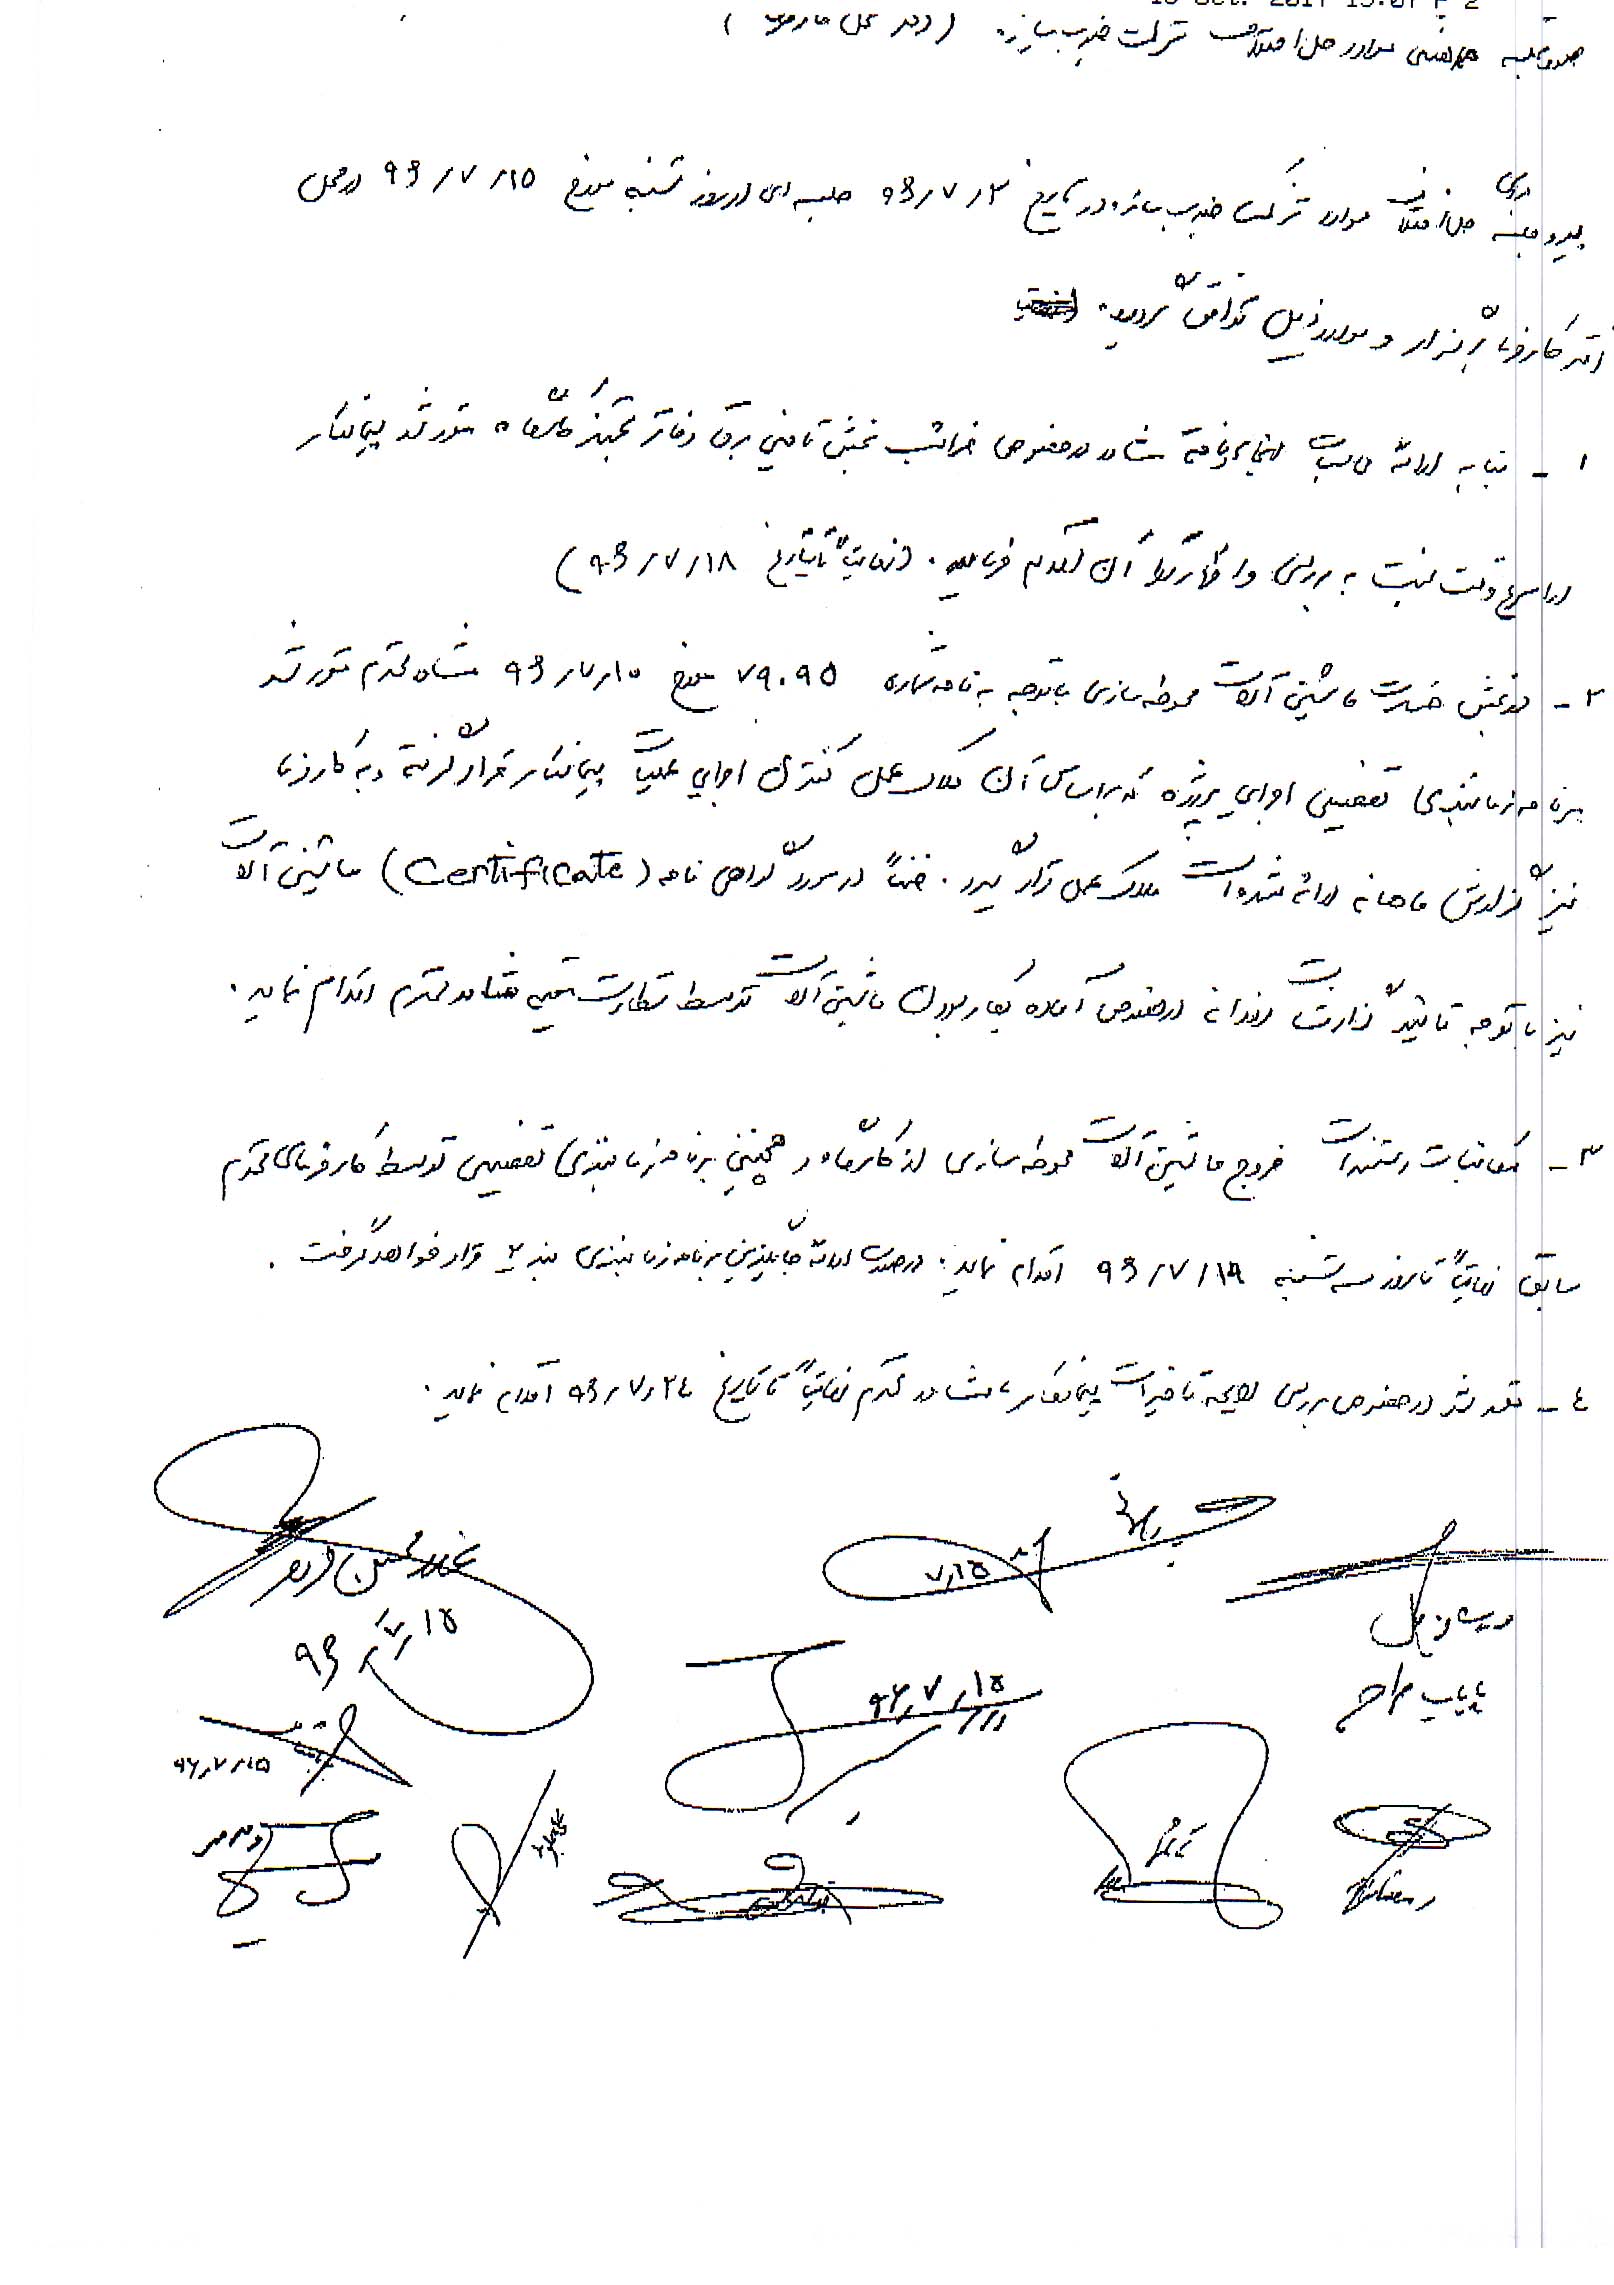 صورتجلسه هماهنگی موارد حل اختلاف شرکت ضرب سازه (دفتر محل کارفرما)
پیرو جلسه بررسی حل اختلاف موارد شرکت ضرب سازه در تاریخ ۹۶/۷/۳ جلسه ای در روز شنبه مورخ ۹۶/۷/۱۵ در محل
دفتر کارفرما برگزار و موارد ذیل توافق گردید.
۱ - بنا به ارائه محاسبات انجام یافته مشاور در خصوص ضرائب بخش تامین برق دفاتر تجهیز کارگاه مقرر شد پیمانکار
در اسرع وقت نسبت به بررسی و اظهار نظر آن اقدام فرمایید. (نهایتاً تا تاریخ ۹۶/۷/۱۸)
۲ - در بخش خسارت ماشین آلات محوطه سازی با توجه به نامه شماره ۷۹۰۹۵ مورخ ۹۶/۷/۱۰ مشاور محترم مقرر شد
برنامه زمانبندی تفصیلی اجرای پروژه که بر اساس آن ملاک عمل کنترل اجرای عملیات پیمانکار قرار گرفته و به کارفرما
نیز گزارش ماهانه ارائه شده است ملاک عمل قرار گیرد. ضمناً در مورد گواهی نامه (Certificate) ماشین آلات
نیز با توجه تائید گزارشات روزانه در خصوص آماده بکار بودن ماشین آلات توسط نظارت مقیم مشاور محترم اقدام نماید.
۳ - مکاتبات و مستندات خروج ماشین آلات محوطه سازی از کارگاه و همچنین برنامه زمانبندی تفصیلی توسط کارفرمای محترم
سابق نهایتاً تا روز سه شنبه ۹۶/۷/۱۸ اقدام نماید. در صورت ارائه جایگزین برنامه زمانبندی بند ۲ قرار خواهد گرفت.
۴ - مقرر شد در خصوص بررسی لایحه تاخیرات پیمانکار با مشاور محترم نهایتاً تا تاریخ ۹۶/۷/۲۴ اقدام نماید.
۷/۱۵
۹۶/۷/۱۵
۹۶/۷/۱۵
۹۶/۷/۱۵